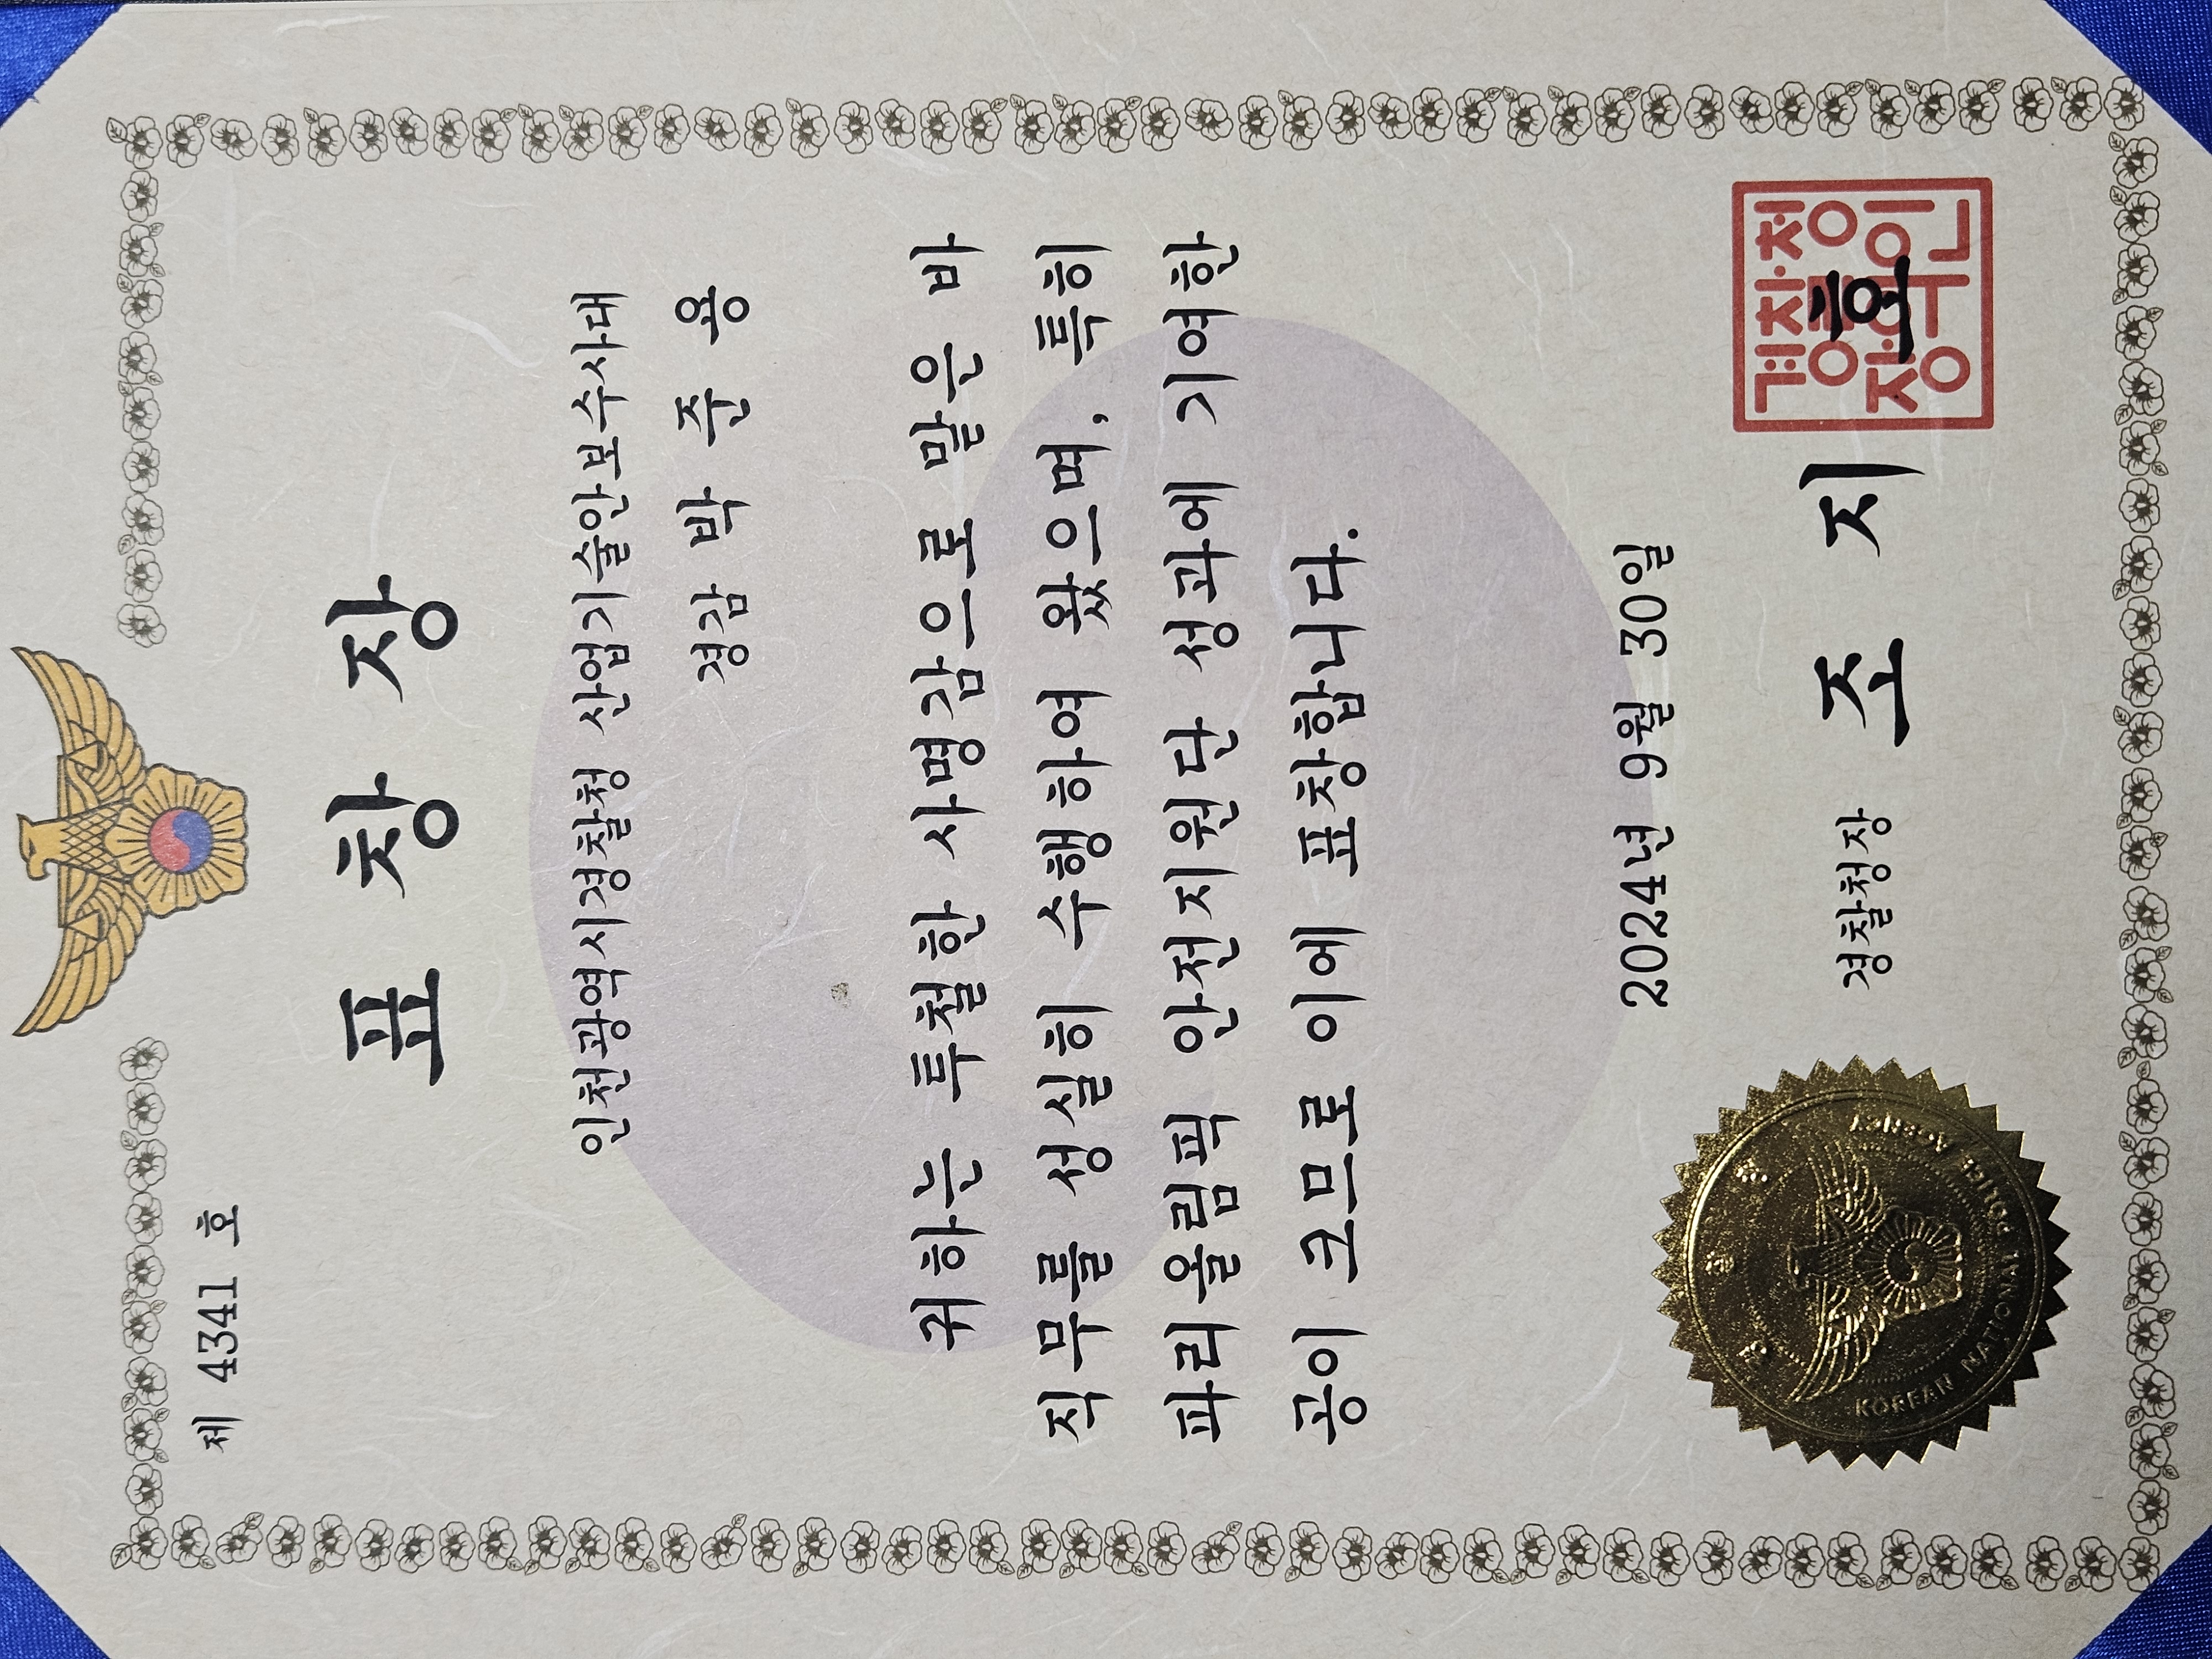 제 4341 호
표 창 장
인천광역시경찰청 산업기술안보수사대
경감 박 준 용
귀하는 투철한 사명감으로 맡은 바
직무를 성실히 수행하여 왔으며, 특히
파리올림픽 안전지원단 성과에 기여한
공이 크므로 이에 표창합니다.
2024년 9월 30일
경찰청장 조 지 호
경찰청
장의인
KOREAN NATIONAL POLICE AGENCY